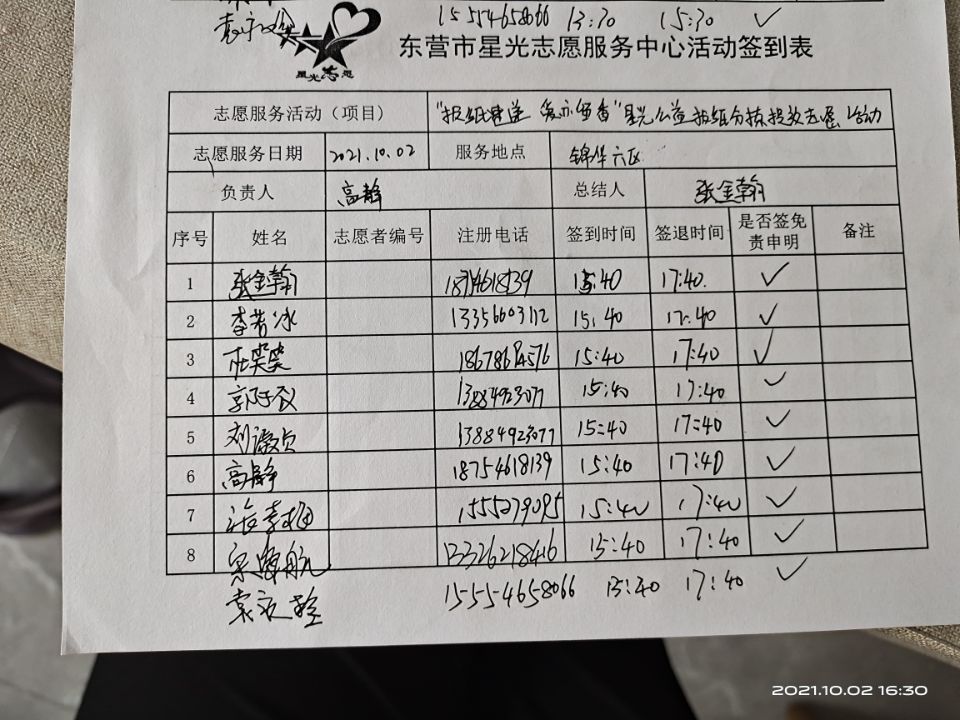 15554658066 13:30 15:30 ✓
星光志愿
东营市星光志愿服务中心活动签到表
志愿服务活动（项目） "报纸速递 爱亦留香"星光公益报纸分拣投放志愿活动
志愿服务日期 2021.10.02 服务地点 锦华六区
负责人 高静 总结人 张金瀚
序号 姓名 志愿者编号 注册电话 签到时间 签退时间 是否签免责申明 备注
1 张金瀚 15:40 17:40. ✓
2 李若冰 13356603112 15:40 17:40 ✓
3 杜奕奕 15:40 17:40 ✓
4 13884923077 15:40 17:40 ✓
5 13884923077 15:40 17:40 ✓
6 高静 18754618139 15:40 17:40 ✓
7 15:40 17:40 ✓
8 13326218416 15:40 17:40 ✓
15554658066 15:40 17:40 ✓
2021.10.02 16:30